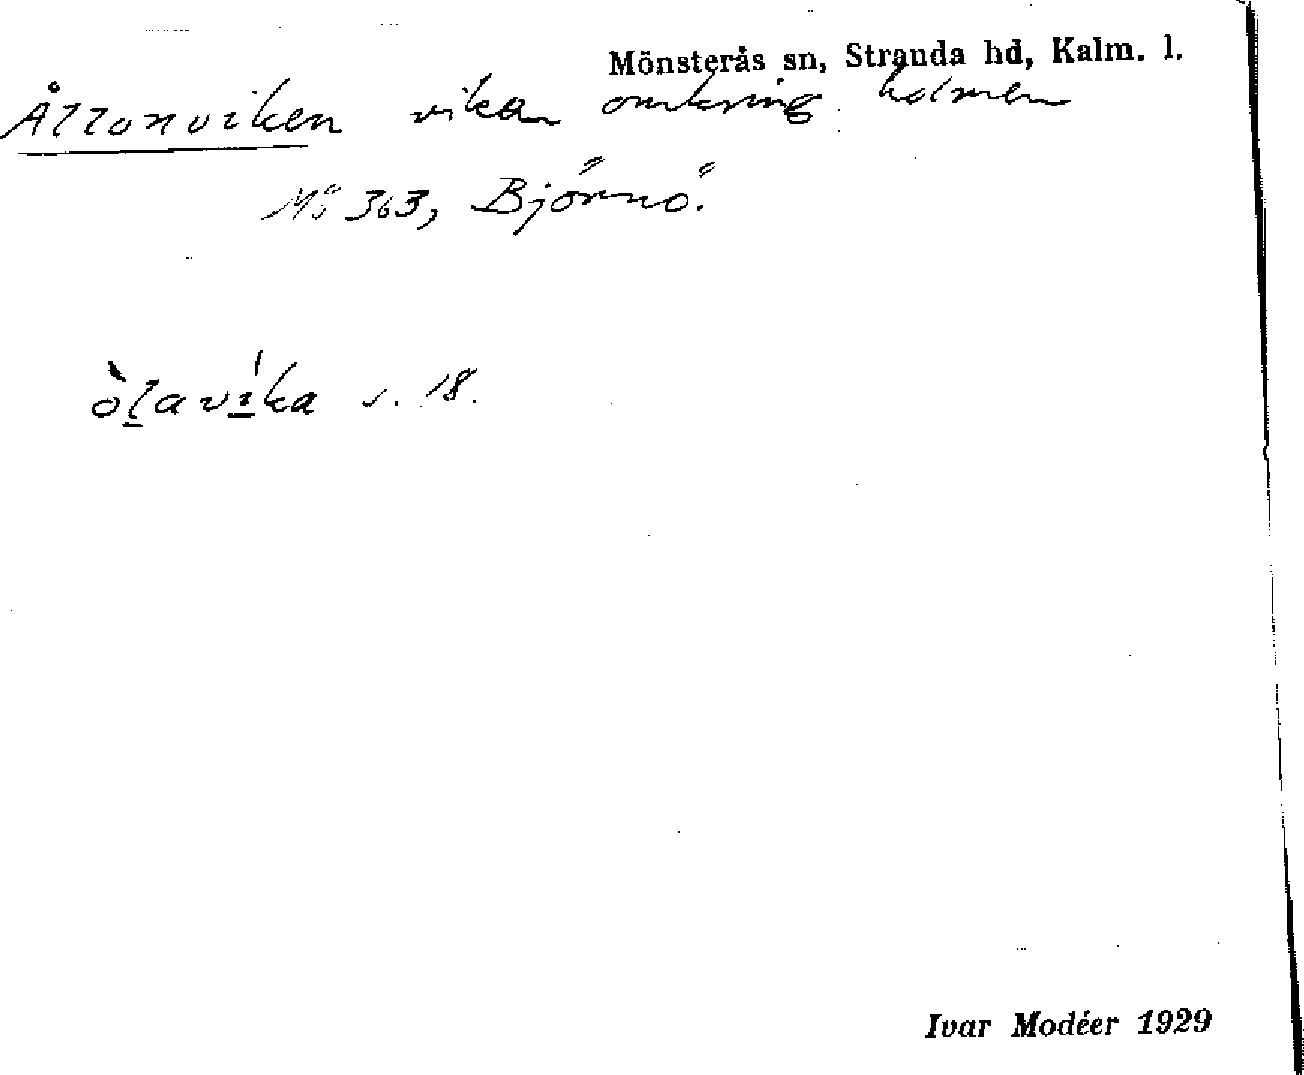 Mönsterås sn, Stranda hd, Kalm. l.
Ållonviken vikan omkring holmen
Mö 363, Björnö.
òlavíka s. 18.
Ivar Modéer 1929